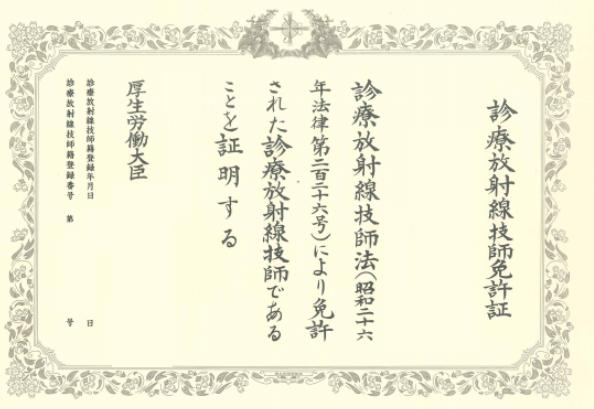 診療放射線技師免許証
診療放射線技師法(昭和二十六
年法律第二百二十六号)により免許
された診療放射線技師である
ことを証明する
厚生労働大臣
診療放射線技師籍登録年月日 日
診療放射線技師籍登録番号 第 号